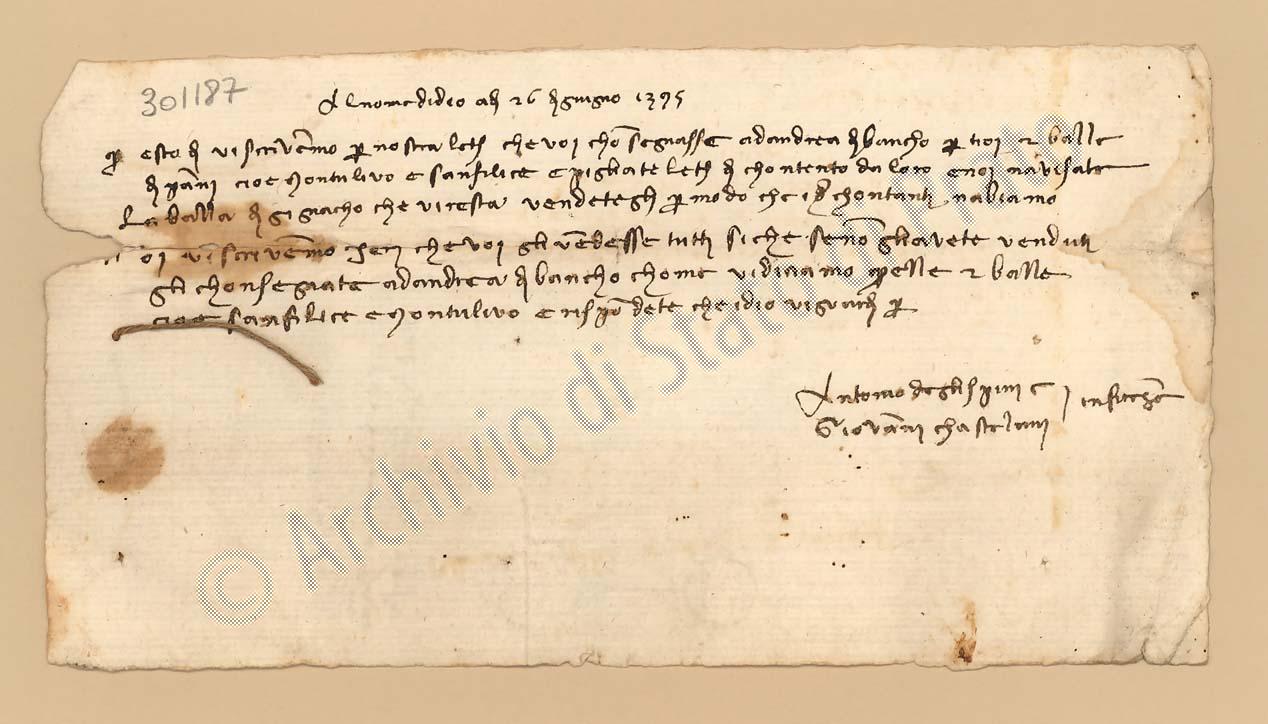 301187
Al nome di dio adì 26 di giugno 1395
esto dì vi scrivemo per nostra letera che voi chonsegnasse ad andrea di bancho per noi 2 balle
di panni cioè Montulivo e sanfilice e pigliate letera di chontento da loro e noi navisate
La balla di gignacho che vi resta vendetegli per modo che i d chontanti nabiamo
oi vi scrivemo Ieri che voi gli vendesse tutti siche se non gliavete venduti
gli chonsegnate ad andrea di bancho chome vidiciamo quelle 2 balle
cioè sanfilice e Montulivo e rispondete che idio vi guardi per
Antonio degli spini e
Giovanni chastelani in firenze
© Archivio di Stato di Prato